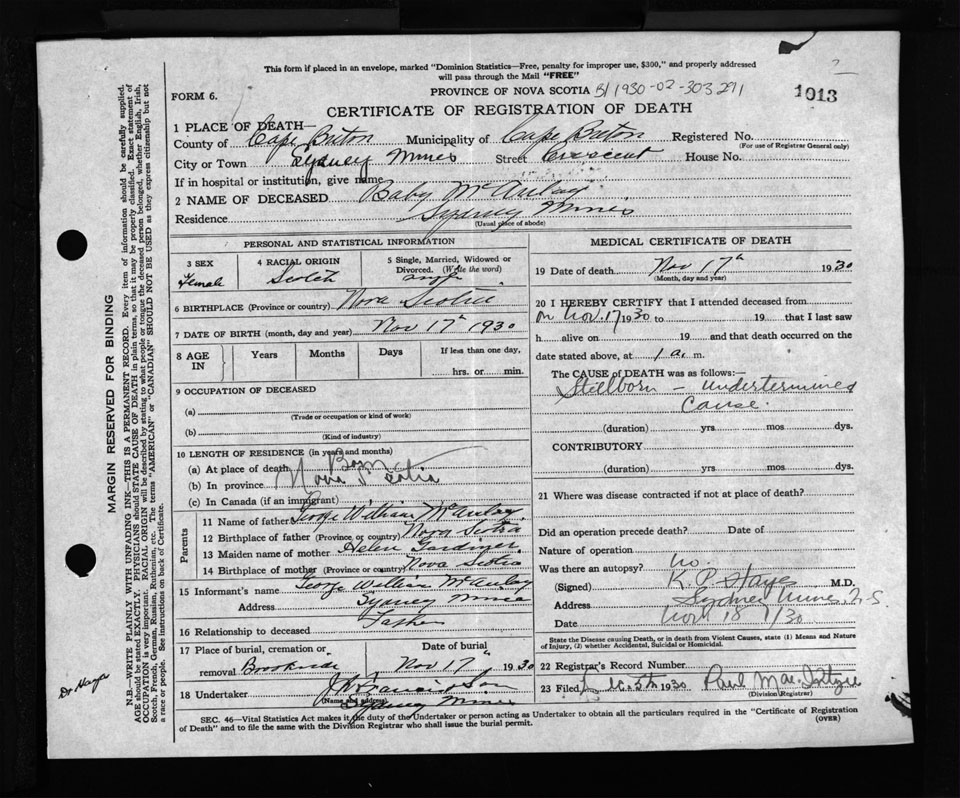 This form if placed in an envelope, marked "Dominion Statistics—Free, penalty for improper use, $300," and properly addressed
will pass through the Mail "FREE"
PROVINCE OF NOVA SCOTIA B/1930-02-303291
1013
FORM 6.
CERTIFICATE OF REGISTRATION OF DEATH
1 PLACE OF DEATH—
County of Cape Breton Municipality of Cape Breton Registered No.
(For use of Registrar General only)
City or Town Sydney Mines Street Crescent House No.
If in hospital or institution, give name
2 NAME OF DECEASED Baby McAulay
Residence Sydney Mines
(Usual place of abode)
PERSONAL AND STATISTICAL INFORMATION
3 SEX
Female
4 RACIAL ORIGIN
Scotch
5 Single, Married, Widowed or
Divorced. (Write the word)
single
6 BIRTHPLACE (Province or country) Nova Scotia
7 DATE OF BIRTH (month, day and year) Nov 17th 1930
8 AGE
IN
Years Months Days If less than one day,
hrs. or min.
9 OCCUPATION OF DECEASED
(a)
(Trade or occupation or kind of work)
(b)
(Kind of industry)
10 LENGTH OF RESIDENCE (in years and months)
(a) At place of death Born
(b) In province Nova Scotia
(c) In Canada (if an immigrant)
Parents
11 Name of father George William McAulay
12 Birthplace of father (Province or country) Nova Scotia
13 Maiden name of mother Helen Gardiner
14 Birthplace of mother (Province or country) Nova Scotia
15 Informant's name George William McAulay
Address Sydney Mines
16 Relationship to deceased Father
17 Place of burial, cremation or
removal Brookside
Date of burial
Nov 17th 1930
18 Undertaker
(Name and address)
Sydney Mines
MEDICAL CERTIFICATE OF DEATH
19 Date of death Nov 17th 1930
(Month, day and year)
20 I HEREBY CERTIFY that I attended deceased from
on Nov. 17 1930 to 19 that I last saw
h alive on 19 and that death occurred on the
date stated above, at 1 a. m.
The CAUSE of DEATH was as follows:—
Stillborn — undertermined
Cause.
(duration) yrs mos dys.
CONTRIBUTORY
(duration) yrs mos dys.
21 Where was disease contracted if not at place of death?
Did an operation precede death? Date of
Nature of operation
Was there an autopsy? no.
(Signed) K. P. Hayes M.D.
Address Sydney Mines N.S.
Date Nov 18 /30
State the Disease causing Death, or in death from Violent Causes, state (1) Means and Nature
of Injury, (2) whether Accidental, Suicidal or Homicidal.
22 Registrar's Record Number
23 Filed Dec. 5th 1930 Paul
(Division Registrar)
SEC. 46—Vital Statistics Act makes it the duty of the Undertaker or person acting as Undertaker to obtain all the particulars required in the "Certificate of Registration
of Death" and to file the same with the Division Registrar who shall issue the burial permit.
(OVER)
MARGIN RESERVED FOR BINDING
N.B.—WRITE PLAINLY WITH UNFADING INK—THIS IS A PERMANENT RECORD. Every item of information should be carefully supplied.
AGE should be stated EXACTLY. PHYSICIANS should STATE CAUSE OF DEATH in plain terms, so that it may be properly classified. Exact statement of
OCCUPATION is very important. RACIAL ORIGIN will be described by stating to what people or tongue the deceased person belonged, whether English, Irish,
Scotch, French, German, Russian, Ruthenian, etc. The terms "AMERICAN" or "CANADIAN" SHOULD NOT BE USED as they express citizenship but not
a race or people. See instructions on back of Certificate.
Dr Hayes